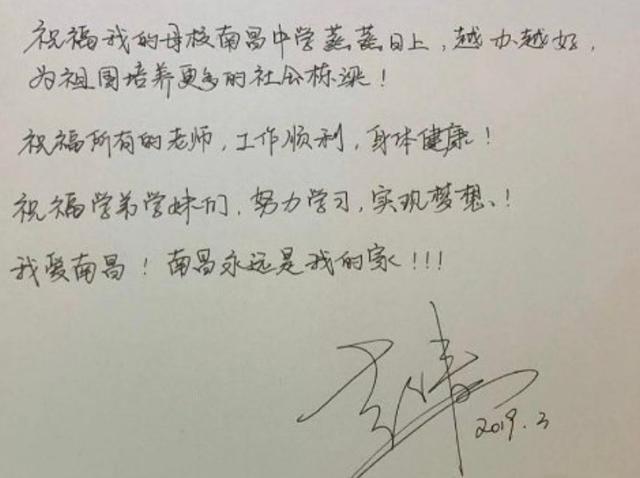 祝福我的母校南昌中学蒸蒸日上，越办越好，
为祖国培养更多的社会栋梁！
祝福所有的老师，工作顺利，身体健康！
祝福学弟学妹们，努力学习，实现梦想！
我爱南昌！南昌永远是我的家！！！
2019.3